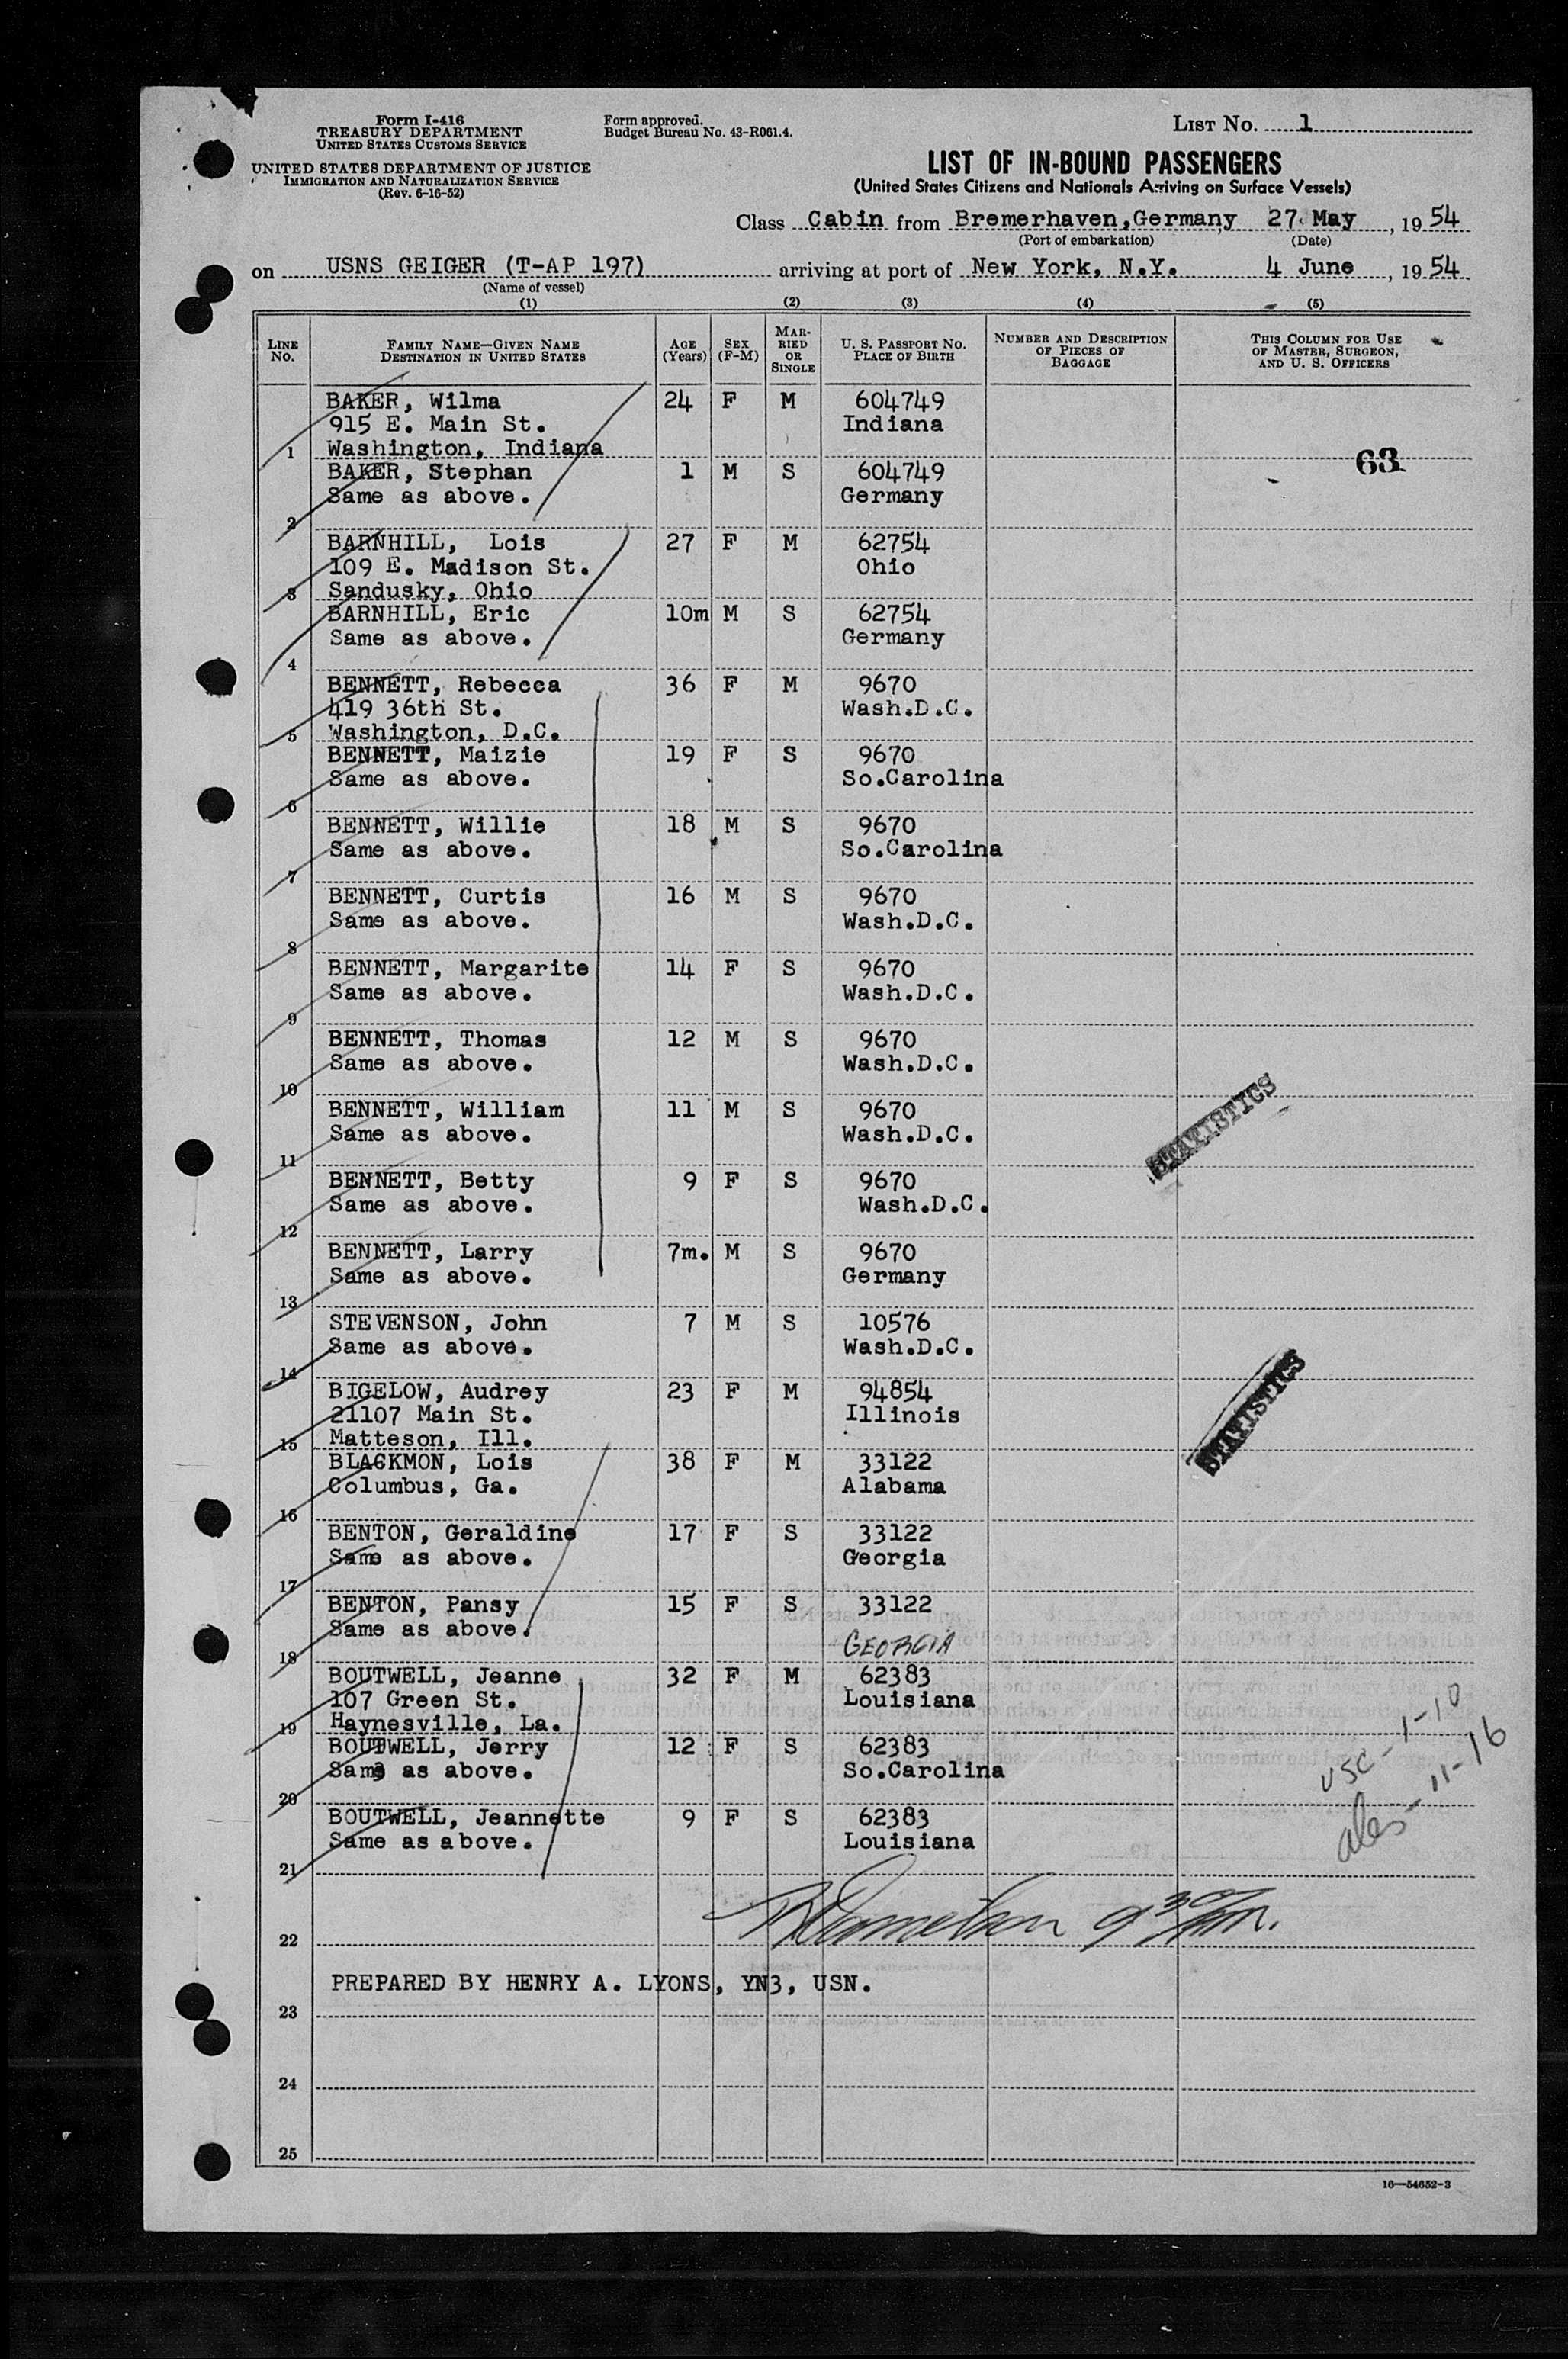 Form I-416
TREASURY DEPARTMENT
UNITED STATES CUSTOMS SERVICE
UNITED STATES DEPARTMENT OF JUSTICE
IMMIGRATION AND NATURALIZATION SERVICE
(Rev. 6-16-52)
Form approved.
Budget Bureau No. 43-R061.4.
LIST NO. 1
LIST OF IN-BOUND PASSENGERS
(United States Citizens and Nationals Arriving on Surface Vessels)
Class Cabin from Bremerhaven,Germany 27 May, 19 54
(Port of embarkation) (Date)
on USNS GEIGER (T-AP 197) arriving at port of New York, N.Y. 4 June, 19 54
(Name of vessel)
(1) (2) (3) (4) (5)
LINE NO.
FAMILY NAME—GIVEN NAME
DESTINATION IN UNITED STATES
AGE (Years)
SEX (F-M)
MARRIED OR SINGLE
U. S. PASSPORT NO.
PLACE OF BIRTH
NUMBER AND DESCRIPTION OF PIECES OF BAGGAGE
THIS COLUMN FOR USE OF MASTER, SURGEON, AND U. S. OFFICERS
BAKER, Wilma 24 F M 604749
915 E. Main St. Indiana
1 Washington, Indiana
63
BAKER, Stephan 1 M S 604749
Same as above. Germany
2
BARNHILL, Lois 27 F M 62754
109 E. Madison St. Ohio
3 Sandusky, Ohio
BARNHILL, Eric 10m M S 62754
Same as above. Germany
4
BENNETT, Rebecca 36 F M 9670
419 36th St. Wash.D.C.
5 Washington, D.C.
BENNETT, Maizie 19 F S 9670
Same as above. So.Carolina
6
BENNETT, Willie 18 M S 9670
Same as above. So.Carolina
7
BENNETT, Curtis 16 M S 9670
Same as above. Wash.D.C.
8
BENNETT, Margarite 14 F S 9670
Same as above. Wash.D.C.
9
BENNETT, Thomas 12 M S 9670
Same as above. Wash.D.C.
10
BENNETT, William 11 M S 9670
Same as above. Wash.D.C.
STATISTICS
11
BENNETT, Betty 9 F S 9670
Same as above. Wash.D.C.
12
BENNETT, Larry 7m. M S 9670
Same as above. Germany
13
STEVENSON, John 7 M S 10576
Same as above. Wash.D.C.
14
BIGELOW, Audrey 23 F M 94854
21107 Main St. Illinois
STATISTICS
15 Matteson, Ill.
BLACKMON, Lois 38 F M 33122
Columbus, Ga. Alabama
16
BENTON, Geraldine 17 F S 33122
Same as above. Georgia
17
BENTON, Pansy 15 F S 33122
Same as above. GEORGIA
18
BOUTWELL, Jeanne 32 F M 62383
107 Green St. Louisiana
19 Haynesville, La.
BOUTWELL, Jerry 12 F S 62383
Same as above. So.Carolina
USC - 1-10
20
BOUTWELL, Jeannette 9 F S 62383
Same as above. Louisiana
11-16
21
22
PREPARED BY HENRY A. LYONS, YN3, USN.
23
24
25
16—54652-3